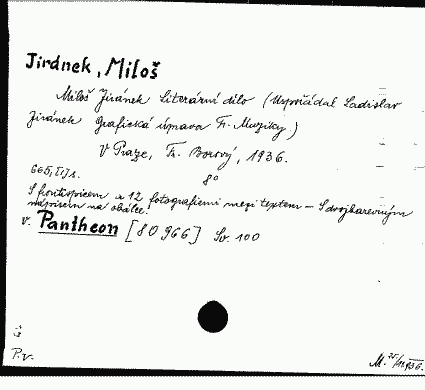 Jiránek, Miloš
Miloš Jiránek Literární dílo (Uspořádal Ladislav
Jiránek Grafická úprava Fr. Muziky)
V Praze, Fr. Borový, 1936.
8°
S frontispicem a 12 fotografiemi mezi textem - S dvojbarevným
nápisem na obálce.
v. Pantheon [80966] Sv. 100
P.v.